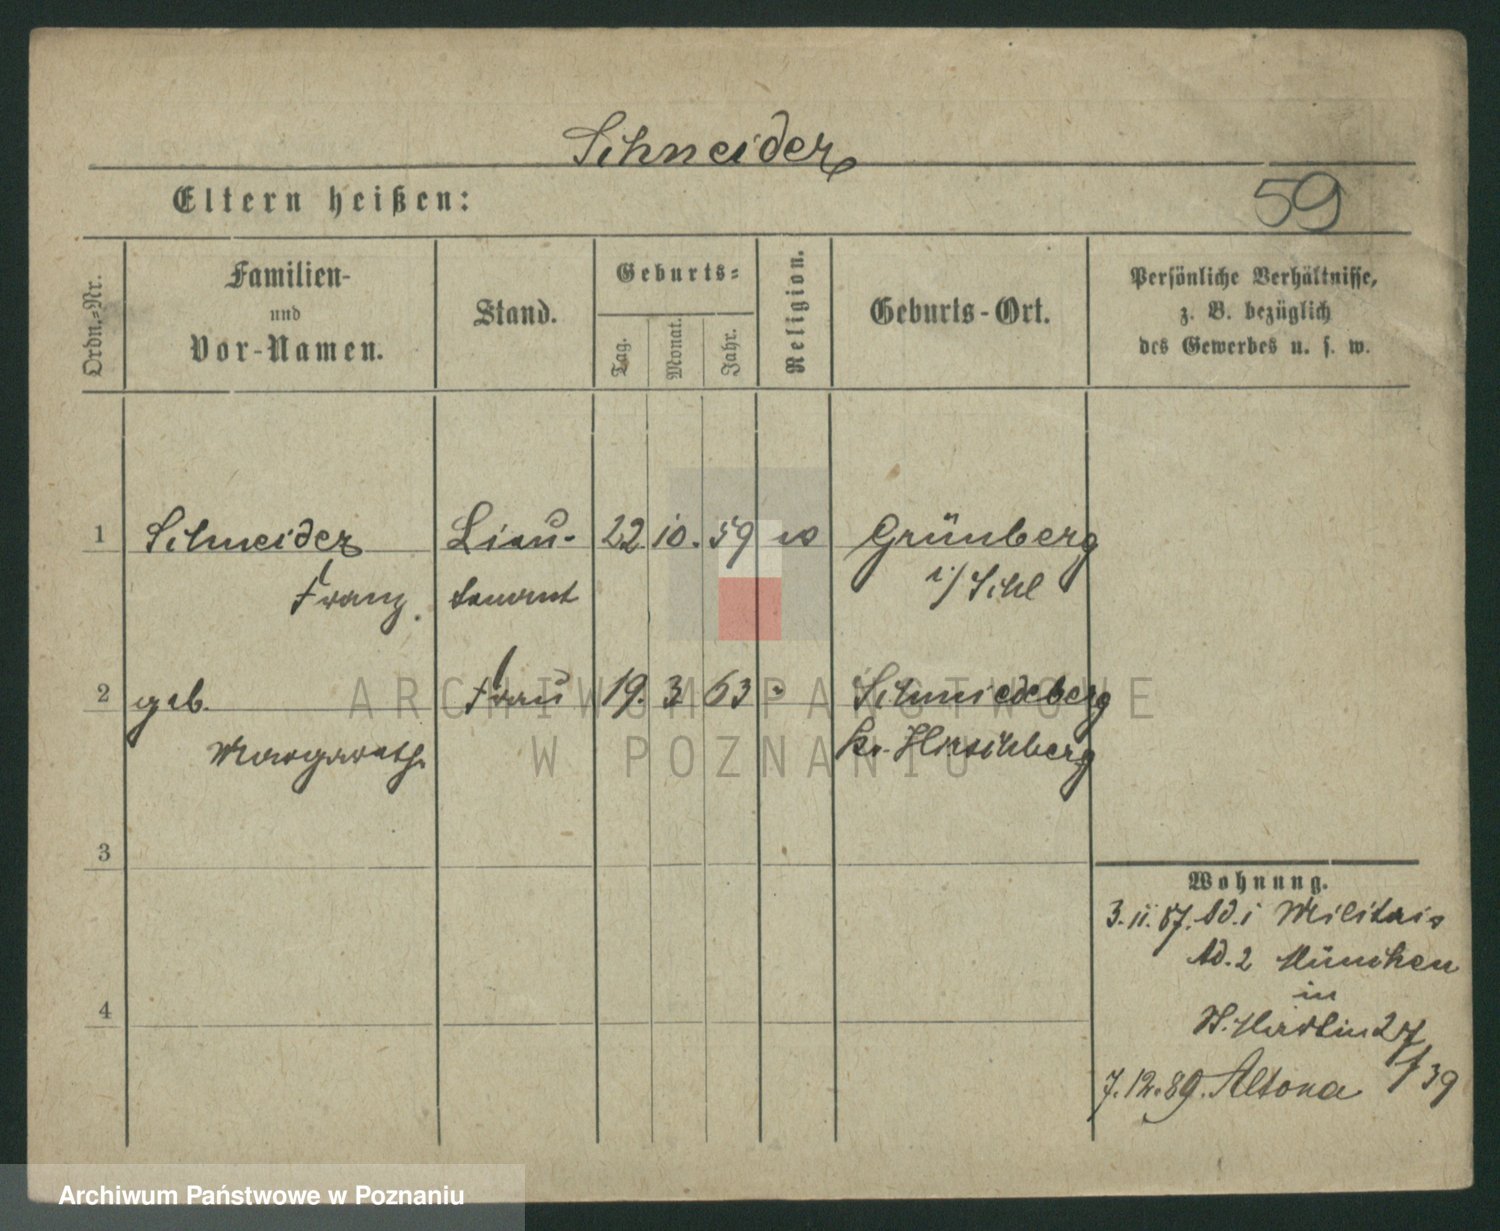 Schneider
Eltern heißen:
59
Ordn.-Nr.
Familien-
und
Vor-Namen.
Stand.
Geburts-
Tag.
Monat.
Jahr.
Religion.
Geburts-Ort.
Persönliche Verhältnisse,
z. B. bezüglich
des Gewerbes u. s. w.
1 Schneider Lieu- 22. 10. 59 Grünberg
Franz. tenant i/Schl
2 geb. Frau 19. 3 63 " Schmiedeberg
Margareth. Kr. Hirschberg
3
4
Wohnung.
3. 11. 87. Ad. 1 Militair
Ad. 2 München
in
St. Martin 27
/39
7. 12. 89. Altona
ARCHIWUM PAŃSTWOWE
W POZNANIU
Archiwum Państwowe w Poznaniu